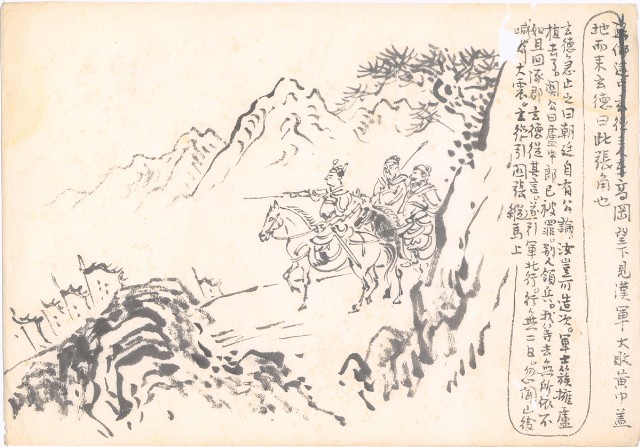 高岡望下見漢軍大敗黃巾蓋
地而来玄德曰此張角也
玄德急止之曰朝廷自有公論。汝豈可造次。軍士簇擁盧
植去了。関公曰盧中郎已被罪。别人領兵。我等去無所依不
如且回涿郡玄德從其言。遂引軍北行。行無二日。忽闻山後
喊声大震。玄德引関張縱馬上